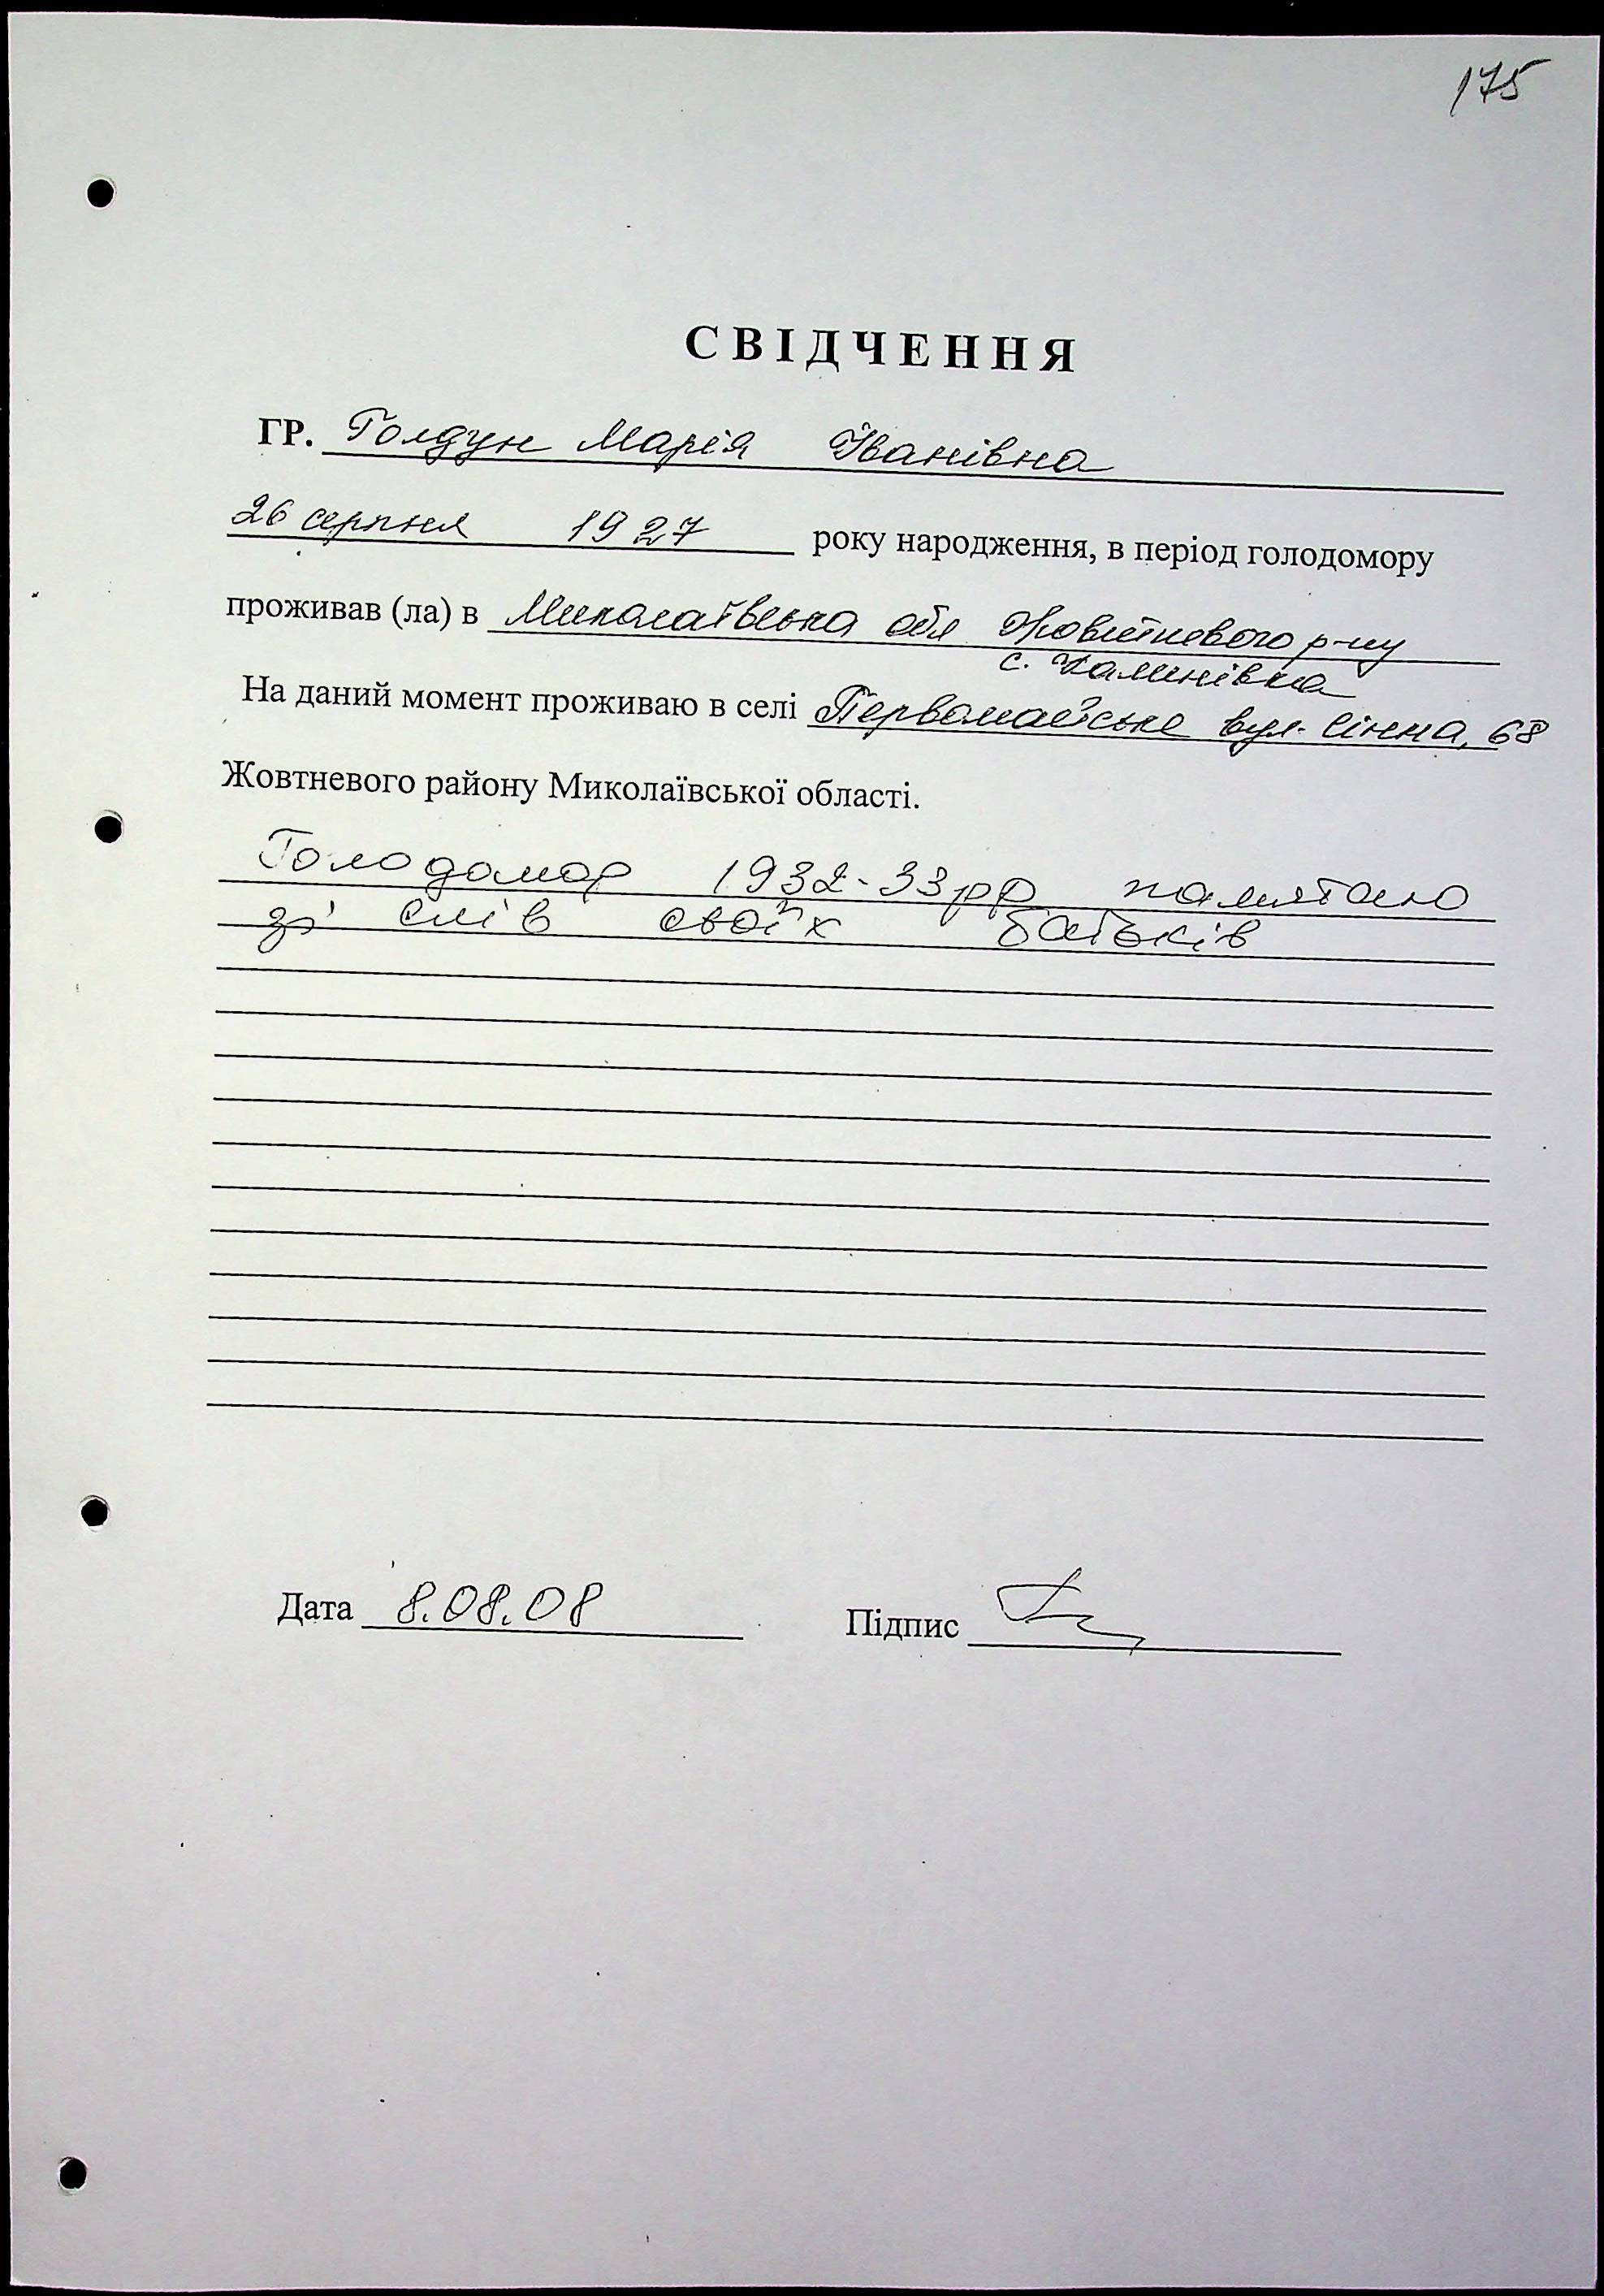 175
СВІДЧЕННЯ
ГР. Голдун Марія Іванівна
26 серпня 1927 року народження, в період голодомору
проживав (ла) в Миколаївська обл Жовтневого р-ну
с. Калинівка
На даний момент проживаю в селі Первомайське вул. Сінна, 68
Жовтневого району Миколаївської області.
Голодомор 1932-33рр памятаю
зі слів своїх батьків
Дата 8.08.08 Підпис